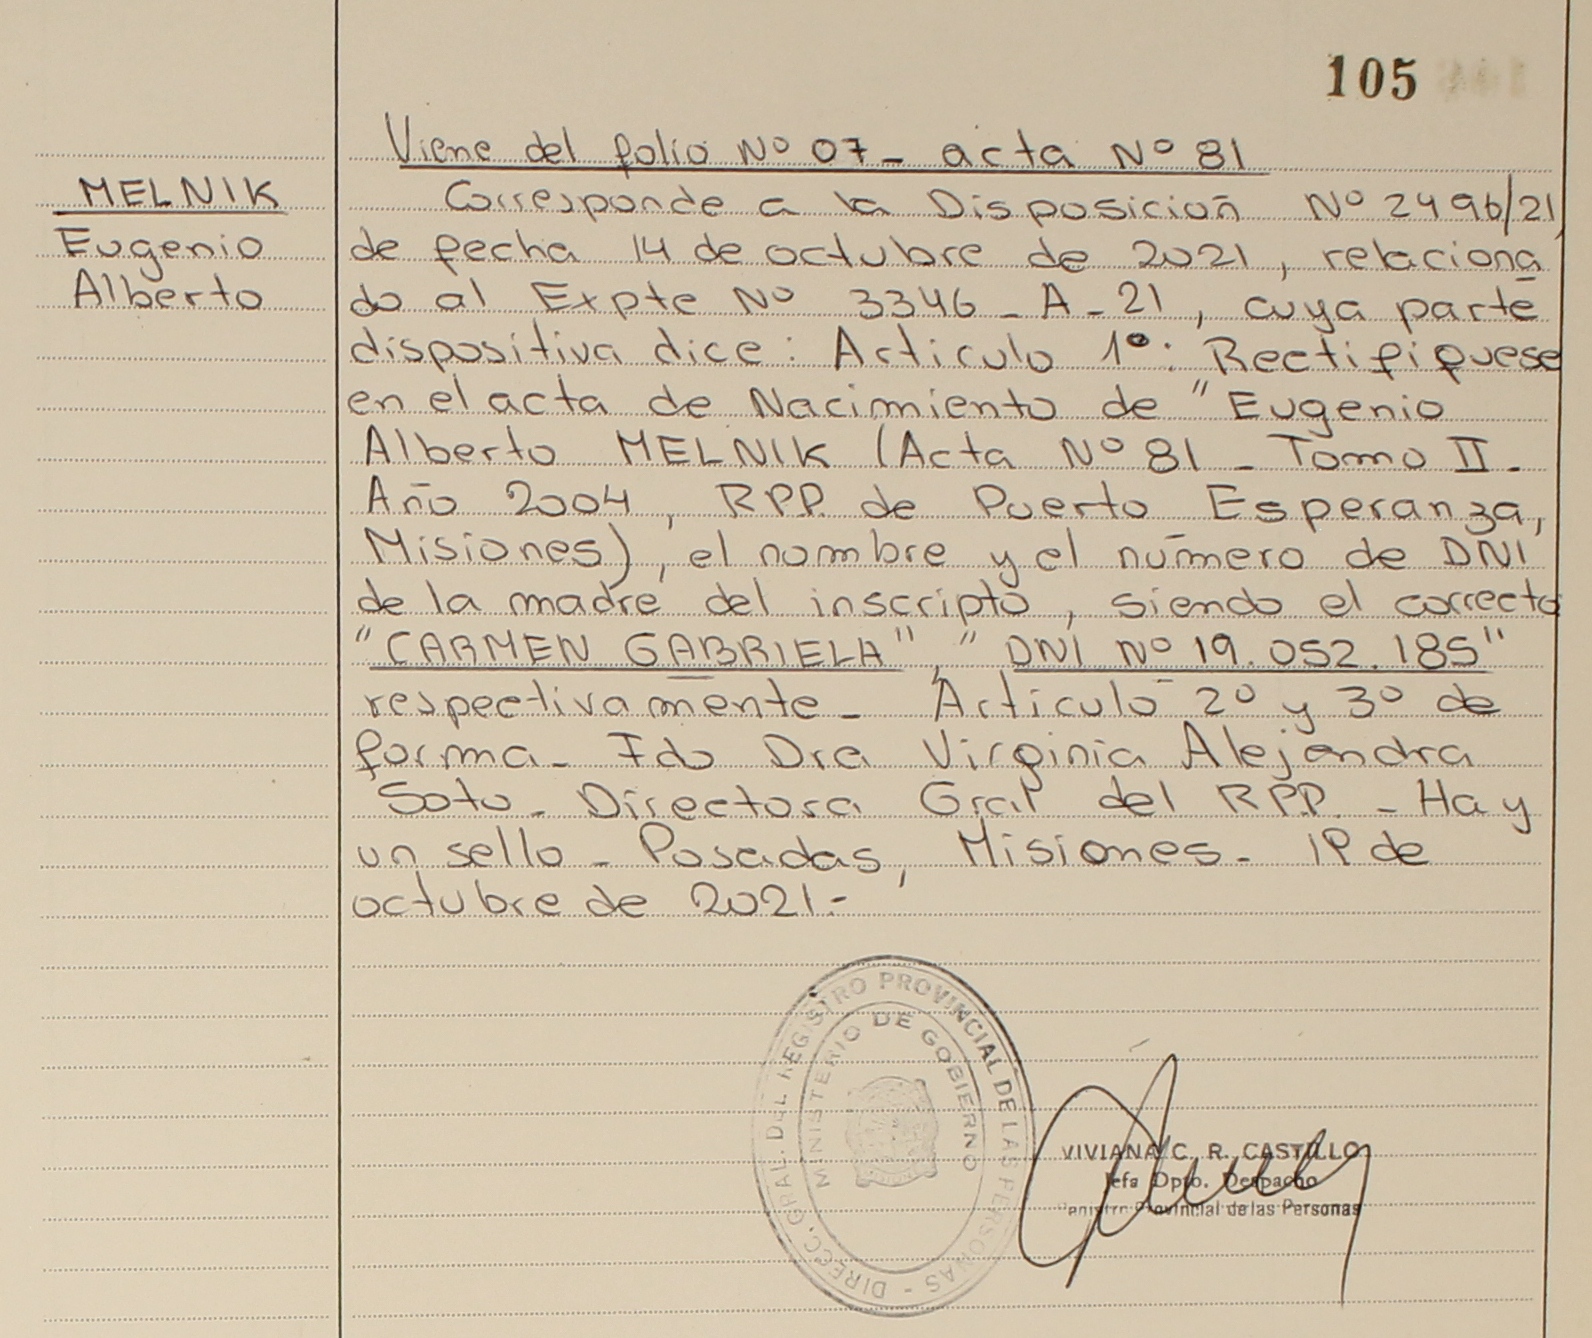 105
Viene del folio Nº 07 - acta Nº 81
MELNIK
Eugenio
Alberto
Corresponde a la Disposición Nº 2496/21,
de fecha 14 de octubre de 2021, relaciona
do al Expte Nº 3346 - A - 21, cuya parte
dispositiva dice: Articulo 1º: Rectifiquese
en el acta de Nacimiento de "Eugenio
Alberto MELNIK (Acta Nº 81 - Tomo II -
Año 2004, RPP. de Puerto Esperanza,
Misiones), el nombre y el número de DNI
de la madre del inscripto, siendo el correcto
"CARMEN GABRIELA", "DNI Nº 19.052.185"
respectivamente - Articulo 2º y 3º de
forma - Fdo Dra Virginia Alejandra
Soto - Directora Gral del RPP. - Hay
un sello - Posadas, Misiones - de
octubre de 2021.-
DIRECC. GRAL. DEL REGISTRO PROVINCIAL DE LAS PERSONAS -
MINISTERIO DE GOBIERNO
VIVIANA C. R. CASTILLO
Jefa Dpto. Despacho
Registro Provincial de las Personas